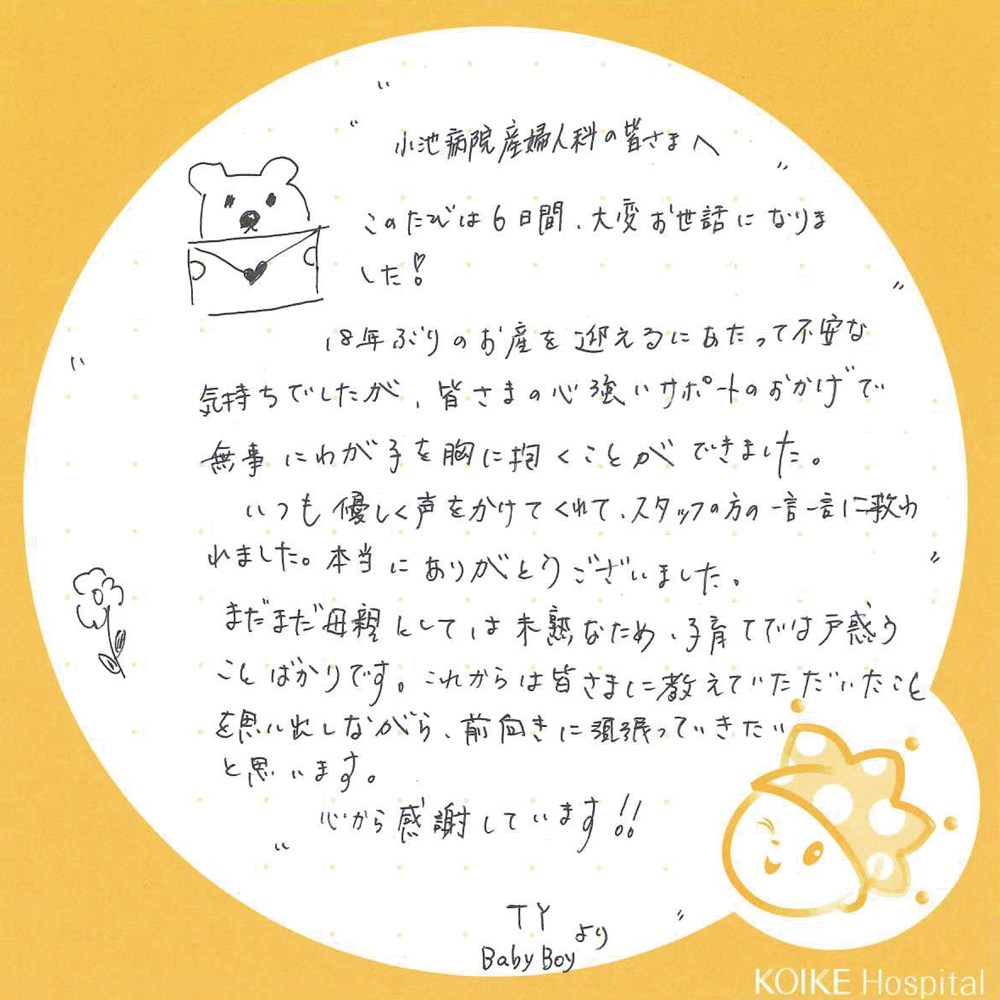 小池病院産婦人科の皆さまへ
このたびは6日間、大変お世話になりま
した!
18年ぶりのお産を迎えるにあたって不安な
気持ちでしたが、皆さまの心強いサポートのおかげで
無事にわが子を胸に抱くことができました。
いつも優しく声をかけてくれて、スタッフの方の一言一言に救わ
れました。本当にありがとうございました。
まだまだ母親としては未熟なため、子育てでは戸惑う
ことばかりです。これからは皆さまに教えていただいたこと
を思い出しながら、前向きに頑張っていきたい
と思います。
心から感謝しています!!
TY
Baby Boy より
KOIKE Hospital